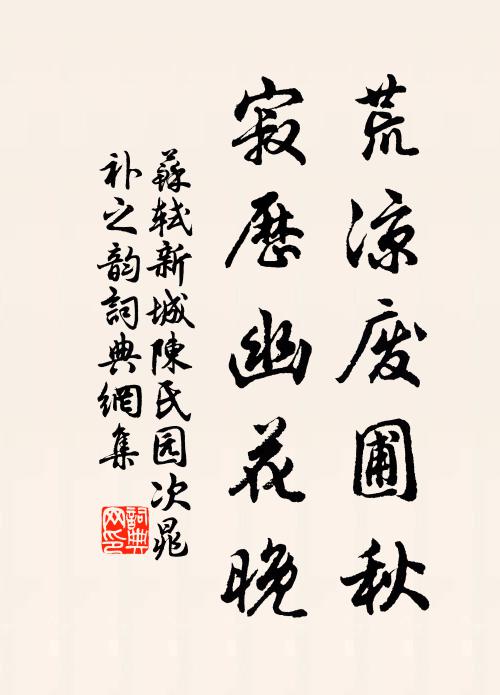 荒凉废圃秋
寂历幽花晚
蘇轼新城陳民园次晁
补之韵詞典網集
詞典
网印